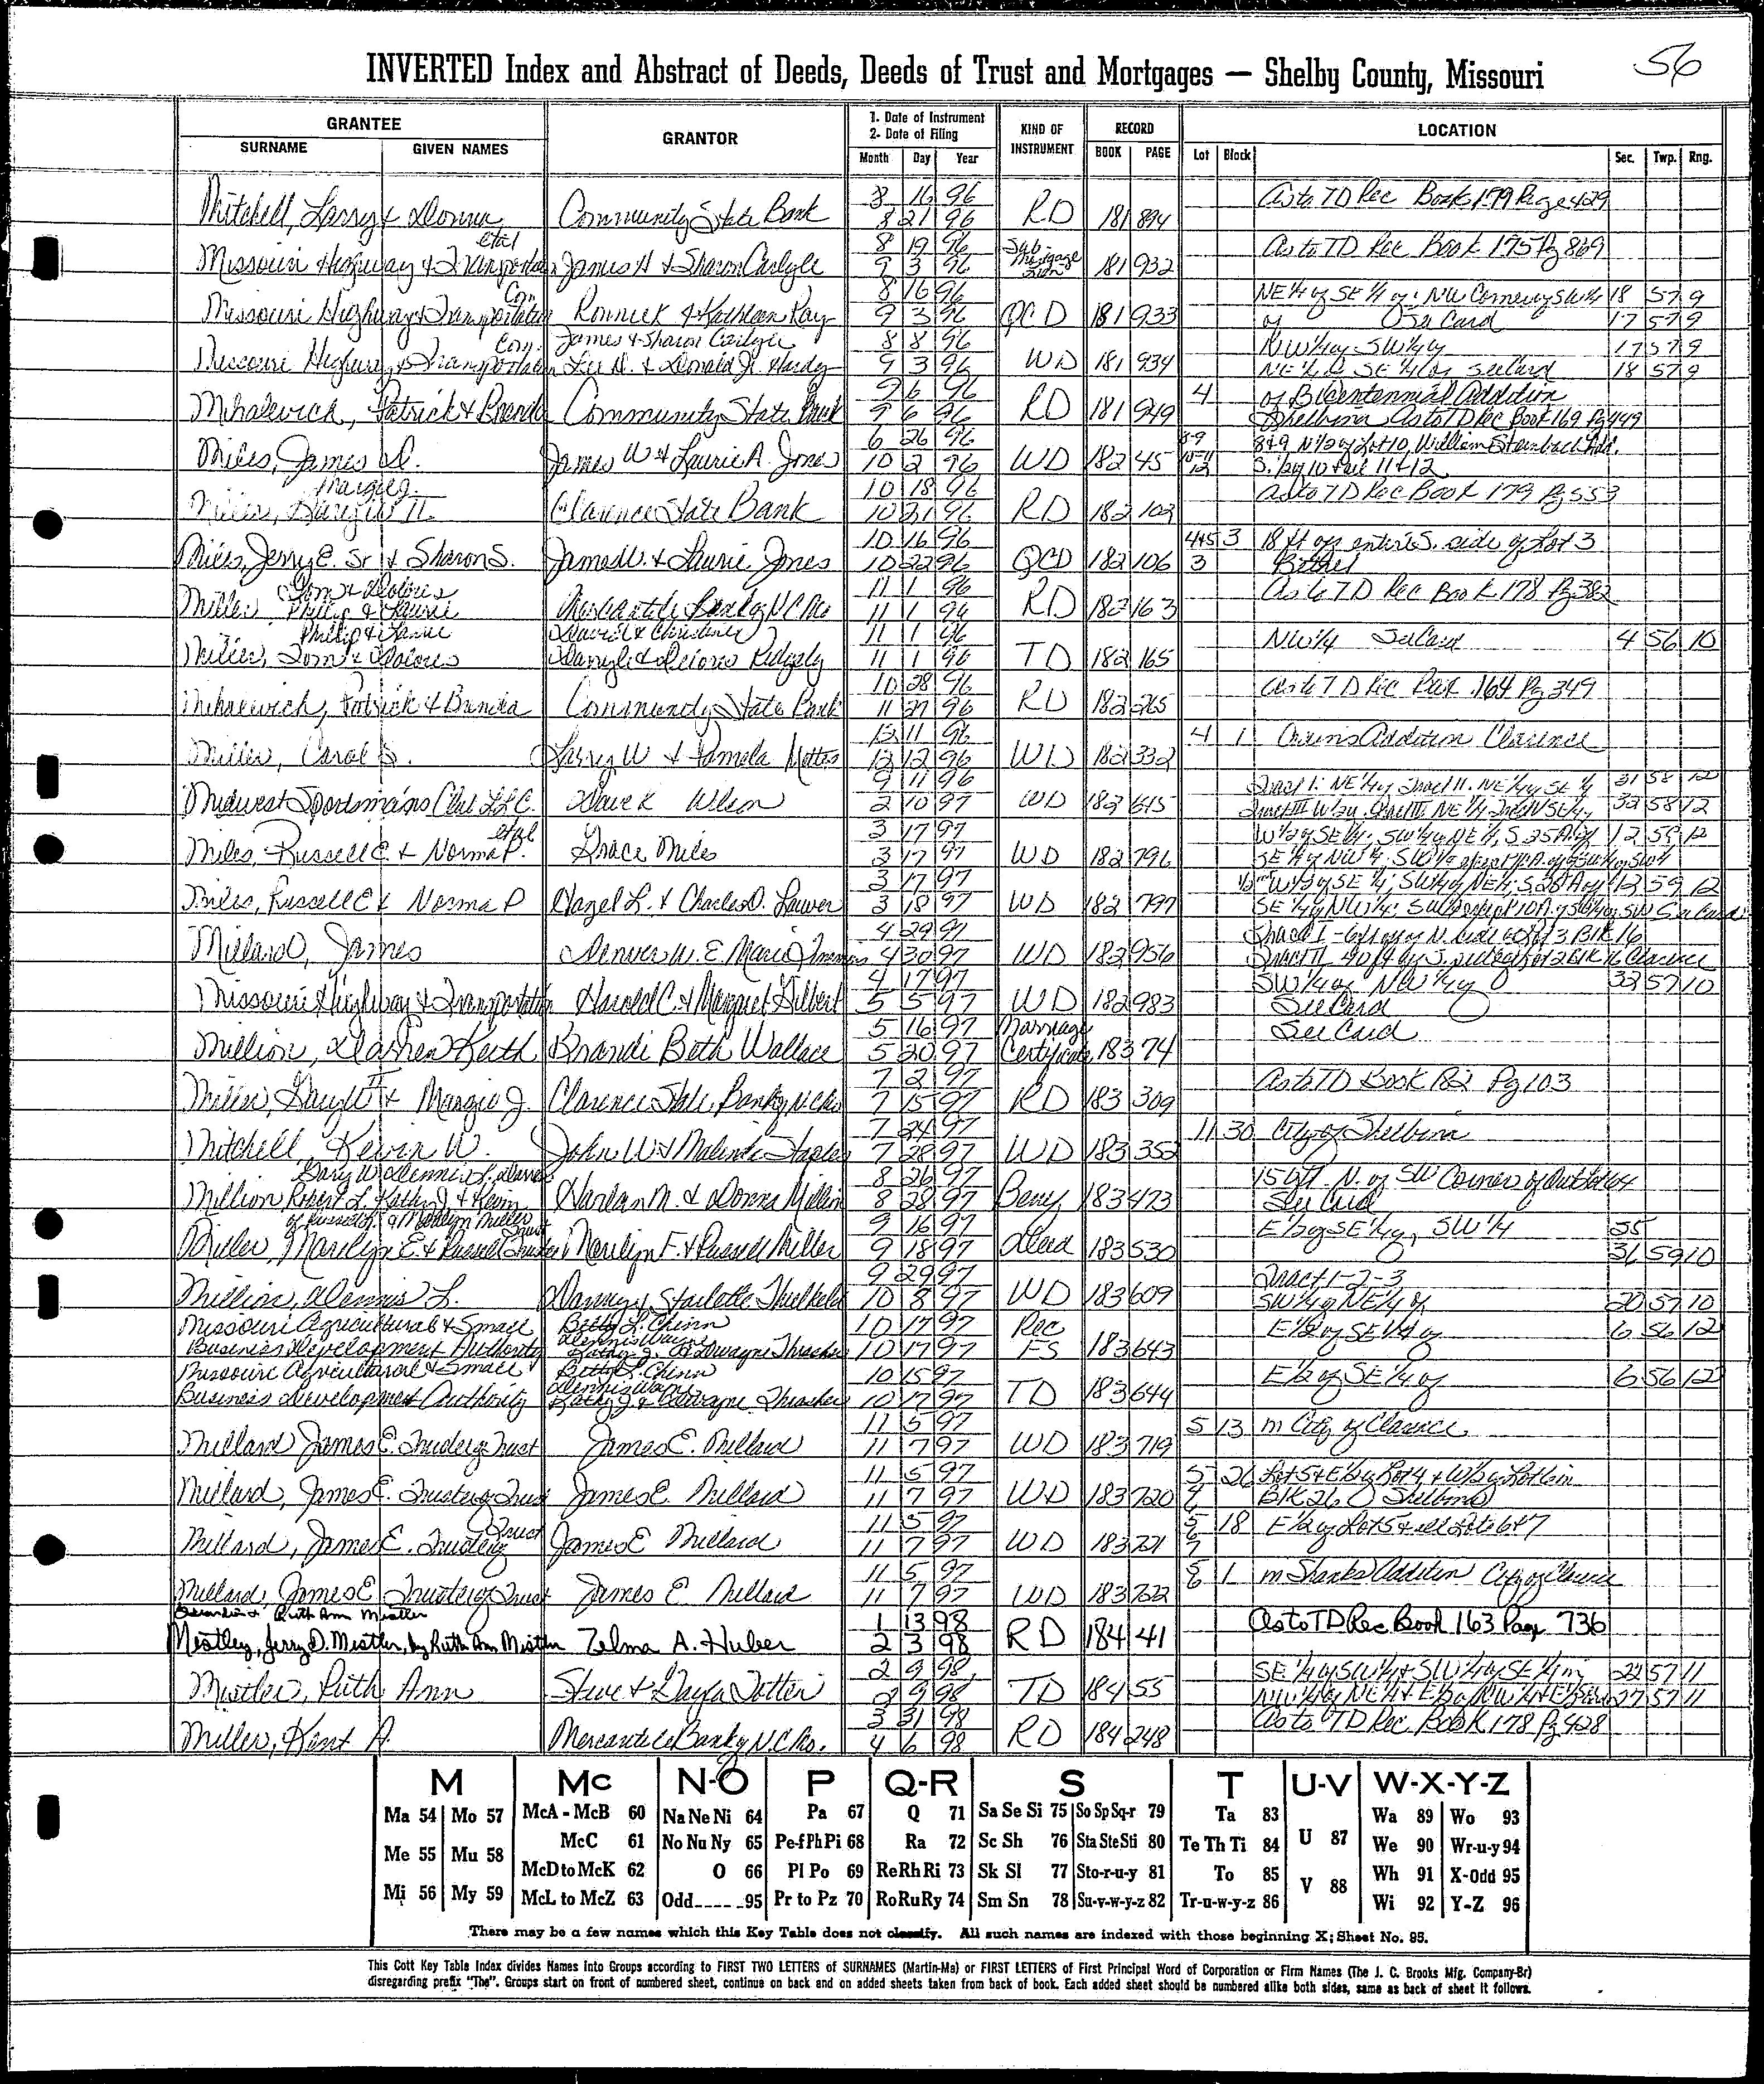 56
INVERTED Index and Abstract of Deeds, Deeds of Trust and Mortgages — Shelby County, Missouri
GRANTEE
SURNAME GIVEN NAMES
GRANTOR
1. Date of Instrument
2. Date of Filing
Month Day Year
KIND OF INSTRUMENT
RECORD
BOOK PAGE
LOCATION
Lot Block Sec. Twp. Rng.
8 16 96 As to TD Rec Book 179 Page 429
Mitchell, Larry & Donna Community State Bank 8 21 96 RD 181 894
etal 8 19 96 As to TD Rec Book 175 Pg 869
Missouri Highway & James H & Sharon Carlyle 9 3 96 181 932
8 16 96 NE 1/4 of SE 1/4 of: NW Corner of SW 1/4 18 57 9
Missouri Highway & Transportation Ronnick & Kathleen Kay 9 3 96 QCD 181 933 17 57 9
Com. James & Sharon Carlyle 8 8 96 NW 1/4 of SW 1/4 of 17 57 9
Missouri Highway & Transportation Lee D. & Donald J. Hardy 9 3 96 WD 181 934 NE 1/4 of SE 1/4 of See Card 18 57 9
9 6 96 4 of Bicentennial Addition
Mihalevich, Patrick & Brenda Community State Bank 9 6 96 RD 181 949 Shelbina As to TD Rec Book 169 Pg 449
6 26 96 8-9 8&9, N 1/2 of Lot 10, William Steinbach Add.
Miles, James D. James W & Laurie A. Jones 10 2 96 WD 182 45 10-11 12 S. 1/2 of 10 & all 11 & 12
Margie J. 10 18 96 As to TD Rec Book 179 Pg 553
Clarence State Bank 10 21 96 RD 182 102
10 16 96 4&5 3 18 ft off entire S. side of Lot 3
Miles, Jerry E. Sr & Sharon S. James W. & Laurie Jones 10 22 96 QCD 182 106 3 Bethel
Tom & Dolores 11 1 96 As to TD Rec Book 178 Pg 382
Miller Philip & Laurie Mercantile Bank of N.C. Mo 11 1 96 RD 182 163
Philip & Laurie David & Christine 11 1 96 NW 1/4 See Card 4 56 10
Miller, Tom & Dolores Darryle & Delores Ridgely 11 1 96 TD 182 165
10 28 96 As to TD Rec Book 164 Pg 349
Mihalevich, Patrick & Brenda Community State Bank 11 27 96 RD 182 265
12 11 96 4 1 Crains Addition Clarence
Miller, Carol S. Larry W & Pamela 12 12 96 WD 182 332
9 11 96 Tract I: NE 1/4 of Tract II: NE 1/4 of SE 1/4 31 58 12
Midwest Sportsmans Club LLC. Dave K Wilson 2 10 97 WD 182 615 32 58 12
etal 3 17 97 W 1/2 of SE 1/4; SW 1/4 of NE 1/4, S 25 A of 12 59 12
Miles, Russell E. & Norma P. Grace Miles 3 17 97 WD 182 796
3 17 97 W 1/2 of SE 1/4; SW 1/4 of NE 1/4; S 28 A of 12 59 12
Miles, Russell E & Norma P Hazel L. & Charles D. Lawer 3 18 97 WD 182 797 See Card
4 29 97 Tract I - 6 ft off of N. side of Lot 3 Blk 16
Millard, James Denver W. E. Marie 4 30 97 WD 182 956 Tract II - 40 ft off S. side of Lot 2 Blk 16 Clarence
4 17 97 SW 1/4 of NW 1/4 of 33 57 10
Missouri Highway & Transportation Harold C. & Margaret Gilbert 5 5 97 WD 182 983 See Card
5 16 97 Marriage See Card
Million, Darren Keith Brandi Beth Wallace 5 20 97 Certificate 183 74
7 2 97 As to TD Book 182 Pg 103
Miller, & Margie J. Clarence State Bank of N C Mo 7 15 97 RD 183 309
7 24 97 11 30 City of Shelbina
Mitchell, Kevin W. John W & Malinda Staples 7 28 97 WD 183 352
Gary W. Dennis L. 8 26 97 15 ft. N. of SW Corner of Outlot 64
Million Robert L. Kathy J & Kevin Harlan M. & Donna Million 8 28 97 Beny 183 473 See Card
of Russell J. & Marilyn Miller Trust 9 16 97 E 1/2 of SE 1/4 of, SW 1/4 35
Miller, Marilyn E. & Russell Marilyn F. & Russell Miller 9 18 97 Deed 183 530 31 59 10
9 29 97 Tract 1-2-3
Million, Dennis L. Danny & Starlotte Threlkeld 10 8 97 WD 183 609 SW 1/4 of NE 1/4 of 20 57 10
Missouri Agricultural & Small Betty L. Chinn 10 17 97 Rec E 1/2 of SE 1/4 of 6 56 12
Business Development Authority Dennis Wayne Kathy J. & Dewayne Thrasher 10 17 97 FS 183 643
Missouri Agricultural & Small Betty L. Chinn 10 15 97 E 1/2 of SE 1/4 of 6 56 12
Business Development Authority Dennis Wayne Kathy J. & Dewayne Thrasher 10 17 97 TD 183 644
11 5 97 5 13 in City of Clarence
Millard James E. Trustee of Trust James E. Millard 11 7 97 WD 183 719
11 5 97 5 26 Lot 5 & E 1/2 of Lot 4 & W 1/2 of Lot 6 in
Millard, James E. Trustee of Trust James E. Millard 11 7 97 WD 183 720 Blk 26 Shelbina
Trust 11 5 97 5 18 E 1/2 of Lot 5 & all Lots 6 & 7
Millard, James E. Trustee of James E Millard 11 7 97 WD 183 721 6 7
11 5 97 1 in Shanks Addition City of Clarence
Millard, James E. Trustee of Trust James E Millard 11 7 97 WD 183 722
Ruth Ann Mistler 1 13 98 As to TD Rec Book 163 Page 736
Mestley, Jerry D. Mistler, by Ruth Ann Mistler Zelma A. Huber 2 3 98 RD 184 41
2 9 98 SE 1/4 of SW 1/4 & SW 1/4 of SE 1/4 in 22 57 11
Mistler, Ruth Ann Steve & Dayla Totten 2 9 98 TD 184 55 27 57 11
3 31 98 As to TD Rec Book 178 Pg 428
Miller, Kent A. Mercantile Bank of N.C. Mo. 4 6 98 RD 184 248
M Mc N-O P Q-R S T U-V W-X-Y-Z
Ma 54 Mo 57 McA - McB 60 Na Ne Ni 64 Pa 67 Q 71 Sa Se Si 75 So Sp Sq-r 79 Ta 83 U 87 Wa 89 Wo 93
Me 55 Mu 58 McC 61 No Nu Ny 65 Pe-f Ph Pi 68 Ra 72 Sc Sh 76 Sta Ste Sti 80 Te Th Ti 84 We 90 Wr-u-y 94
McD to McK 62 O 66 Pl Po 69 Re Rh Ri 73 Sk Sl 77 Sto-r-u-y 81 To 85 V 88 Wh 91 X-Odd 95
Mi 56 My 59 McL to McZ 63 Odd 95 Pr to Pz 70 Ro Ru Ry 74 Sm Sn 78 Su-v-w-y-z 82 Tr-u-w-y-z 86 Wi 92 Y-Z 96
There may be a few names which this Key Table does not classify. All such names are indexed with those beginning X; Sheet No. 95.
This Cott Key Table Index divides Names into Groups according to FIRST TWO LETTERS of SURNAMES (Martin-Ma) or FIRST LETTERS of First Principal Word of Corporation or Firm Names (The J. C. Brooks Mfg. Company-Br)
disregarding prefix "The". Groups start on front of numbered sheet, continue on back and on added sheets taken from back of book. Each added sheet should be numbered alike both sides, same as back of sheet it follows.